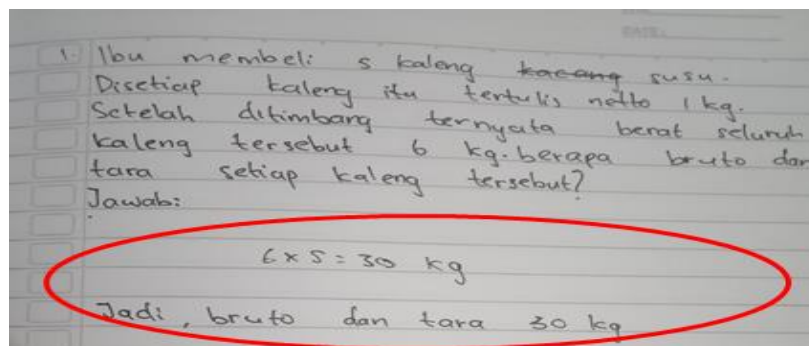 DATE:
1. Ibu membeli 5 kaleng kacang susu.
Disetiap kaleng itu tertulis netto 1 kg.
Setelah ditimbang ternyata berat seluruh
kaleng tersebut 6 kg. berapa bruto dan
tara setiap kaleng tersebut?
Jawab:
6 x 5 = 30 kg
Jadi, bruto dan tara 30 kg